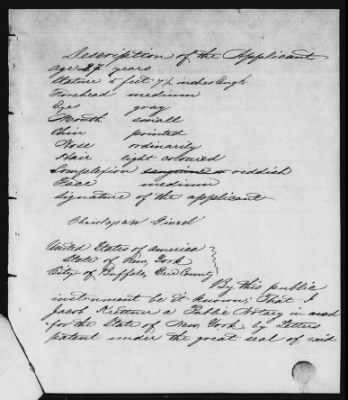 Description of the Applicant
age 27 years
Stature 5 feet 7½ inches Engl.
Forehead medium
Eyes gray
Mouth small
Chin pointed
Nose ordinarily
Hair light coloured
Complexion reddish
Face medium
signature of the applicant
United States of America
State of New York
City of Buffalo, Erie County
By this public
instrument be it known; That I
Jacob Krettner a Public Notary in and
for the State of New York by Letters
patent under the great seal of said